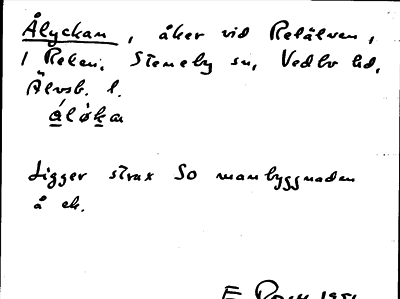 Ålyckan, åker vid Relälven,
1 Reken, Steneby sn, Vedbo hd,
Älvsb. l.
åloka
Ligger strax SO manbyggnaden
å ek.
E